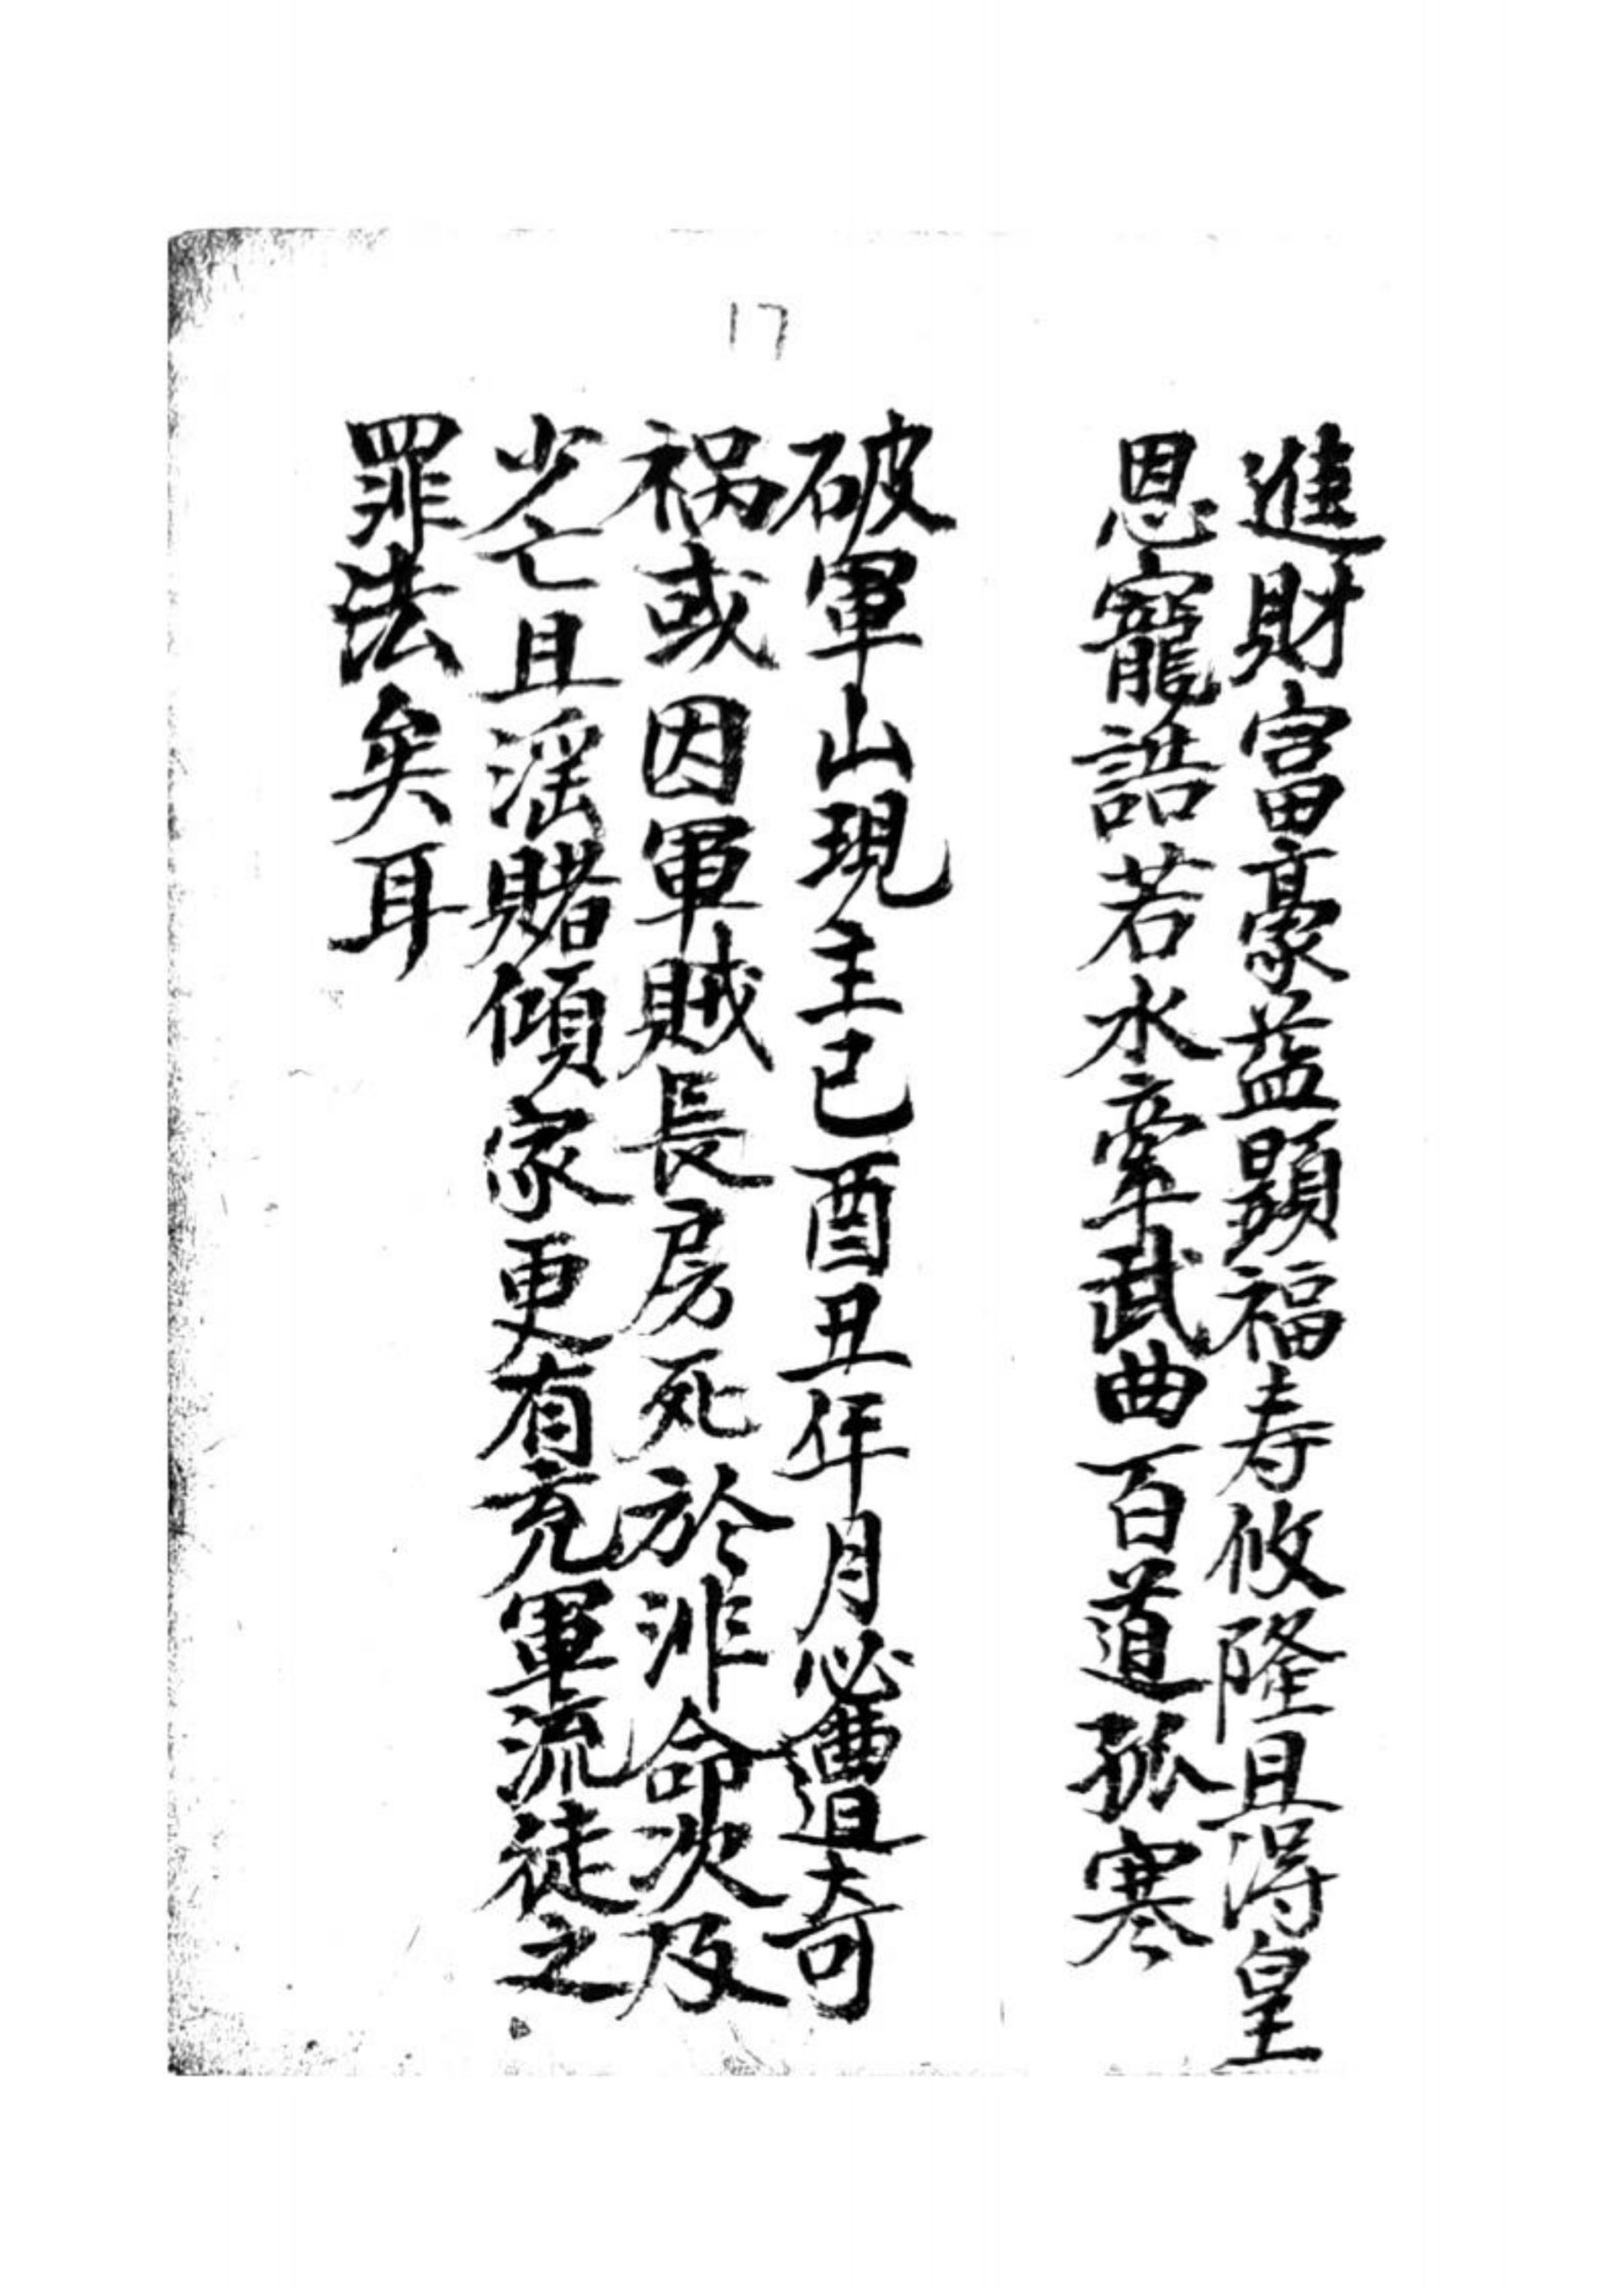 17
進財富豪益顯福寿攸隆且得皇
恩寵誥若水牽武曲百道孤寒
破軍山現主巳酉丑年月必遭奇
禍或因軍賊長房死於非命次及
少亡且淫賭傾家更有充軍流徒之
罪法矣耳